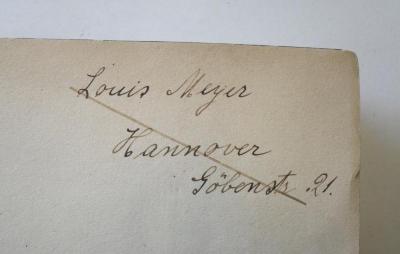 Louis Meyer
Hannover
Göbenstr. 21.